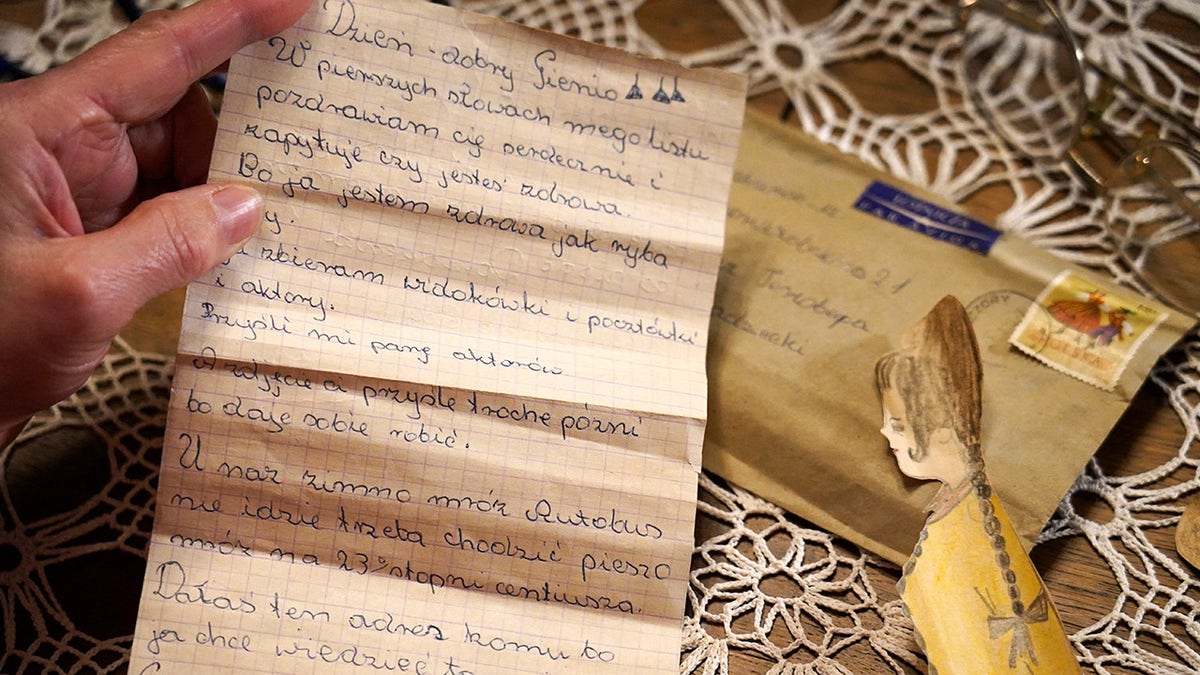 Dzień dobry Gienio
W pierszych słowach mego listu
pozdrawiam cię serdecznie i
zapytuje czy jesteś zdrowa.
Bo ja jestem zdrowa jak ryba
zbieram widokówki i pocztówki
i aktory.
Przyśli mi parę aktorów
A zdjęcie ci przyślę trochę póżni
bo daje sobie robić.
U naz zimno mróz Autobus
nie idzie trzeba chodzić pieszo
mróz na 23° stopni centiusza.
Dałaś ten adres komu to
ja chce wiedzieć
PAR AVION
21
POLSKA